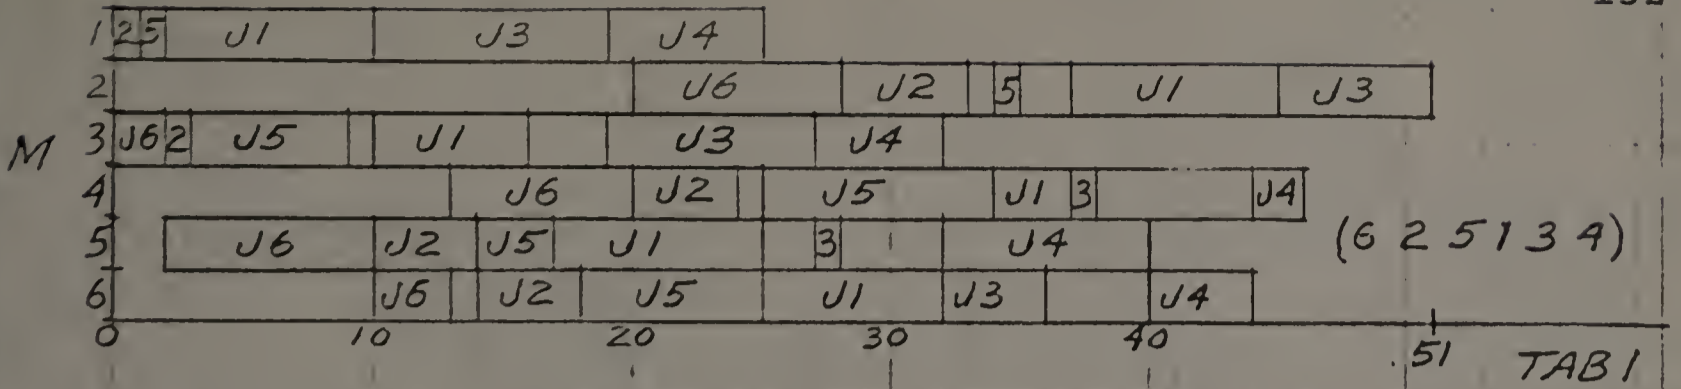 1 2 5 J1 J3 J4
2 J6 J2 5 J1 J3
M 3 J6 2 J5 J1 J3 J4
4 J6 J2 J5 J1 3 J4
5 J6 J2 J5 J1 3 J4 (6 2 5 1 3 4)
6 J6 J2 J5 J1 J3 J4
0 10 20 30 40 .51 TAB 1